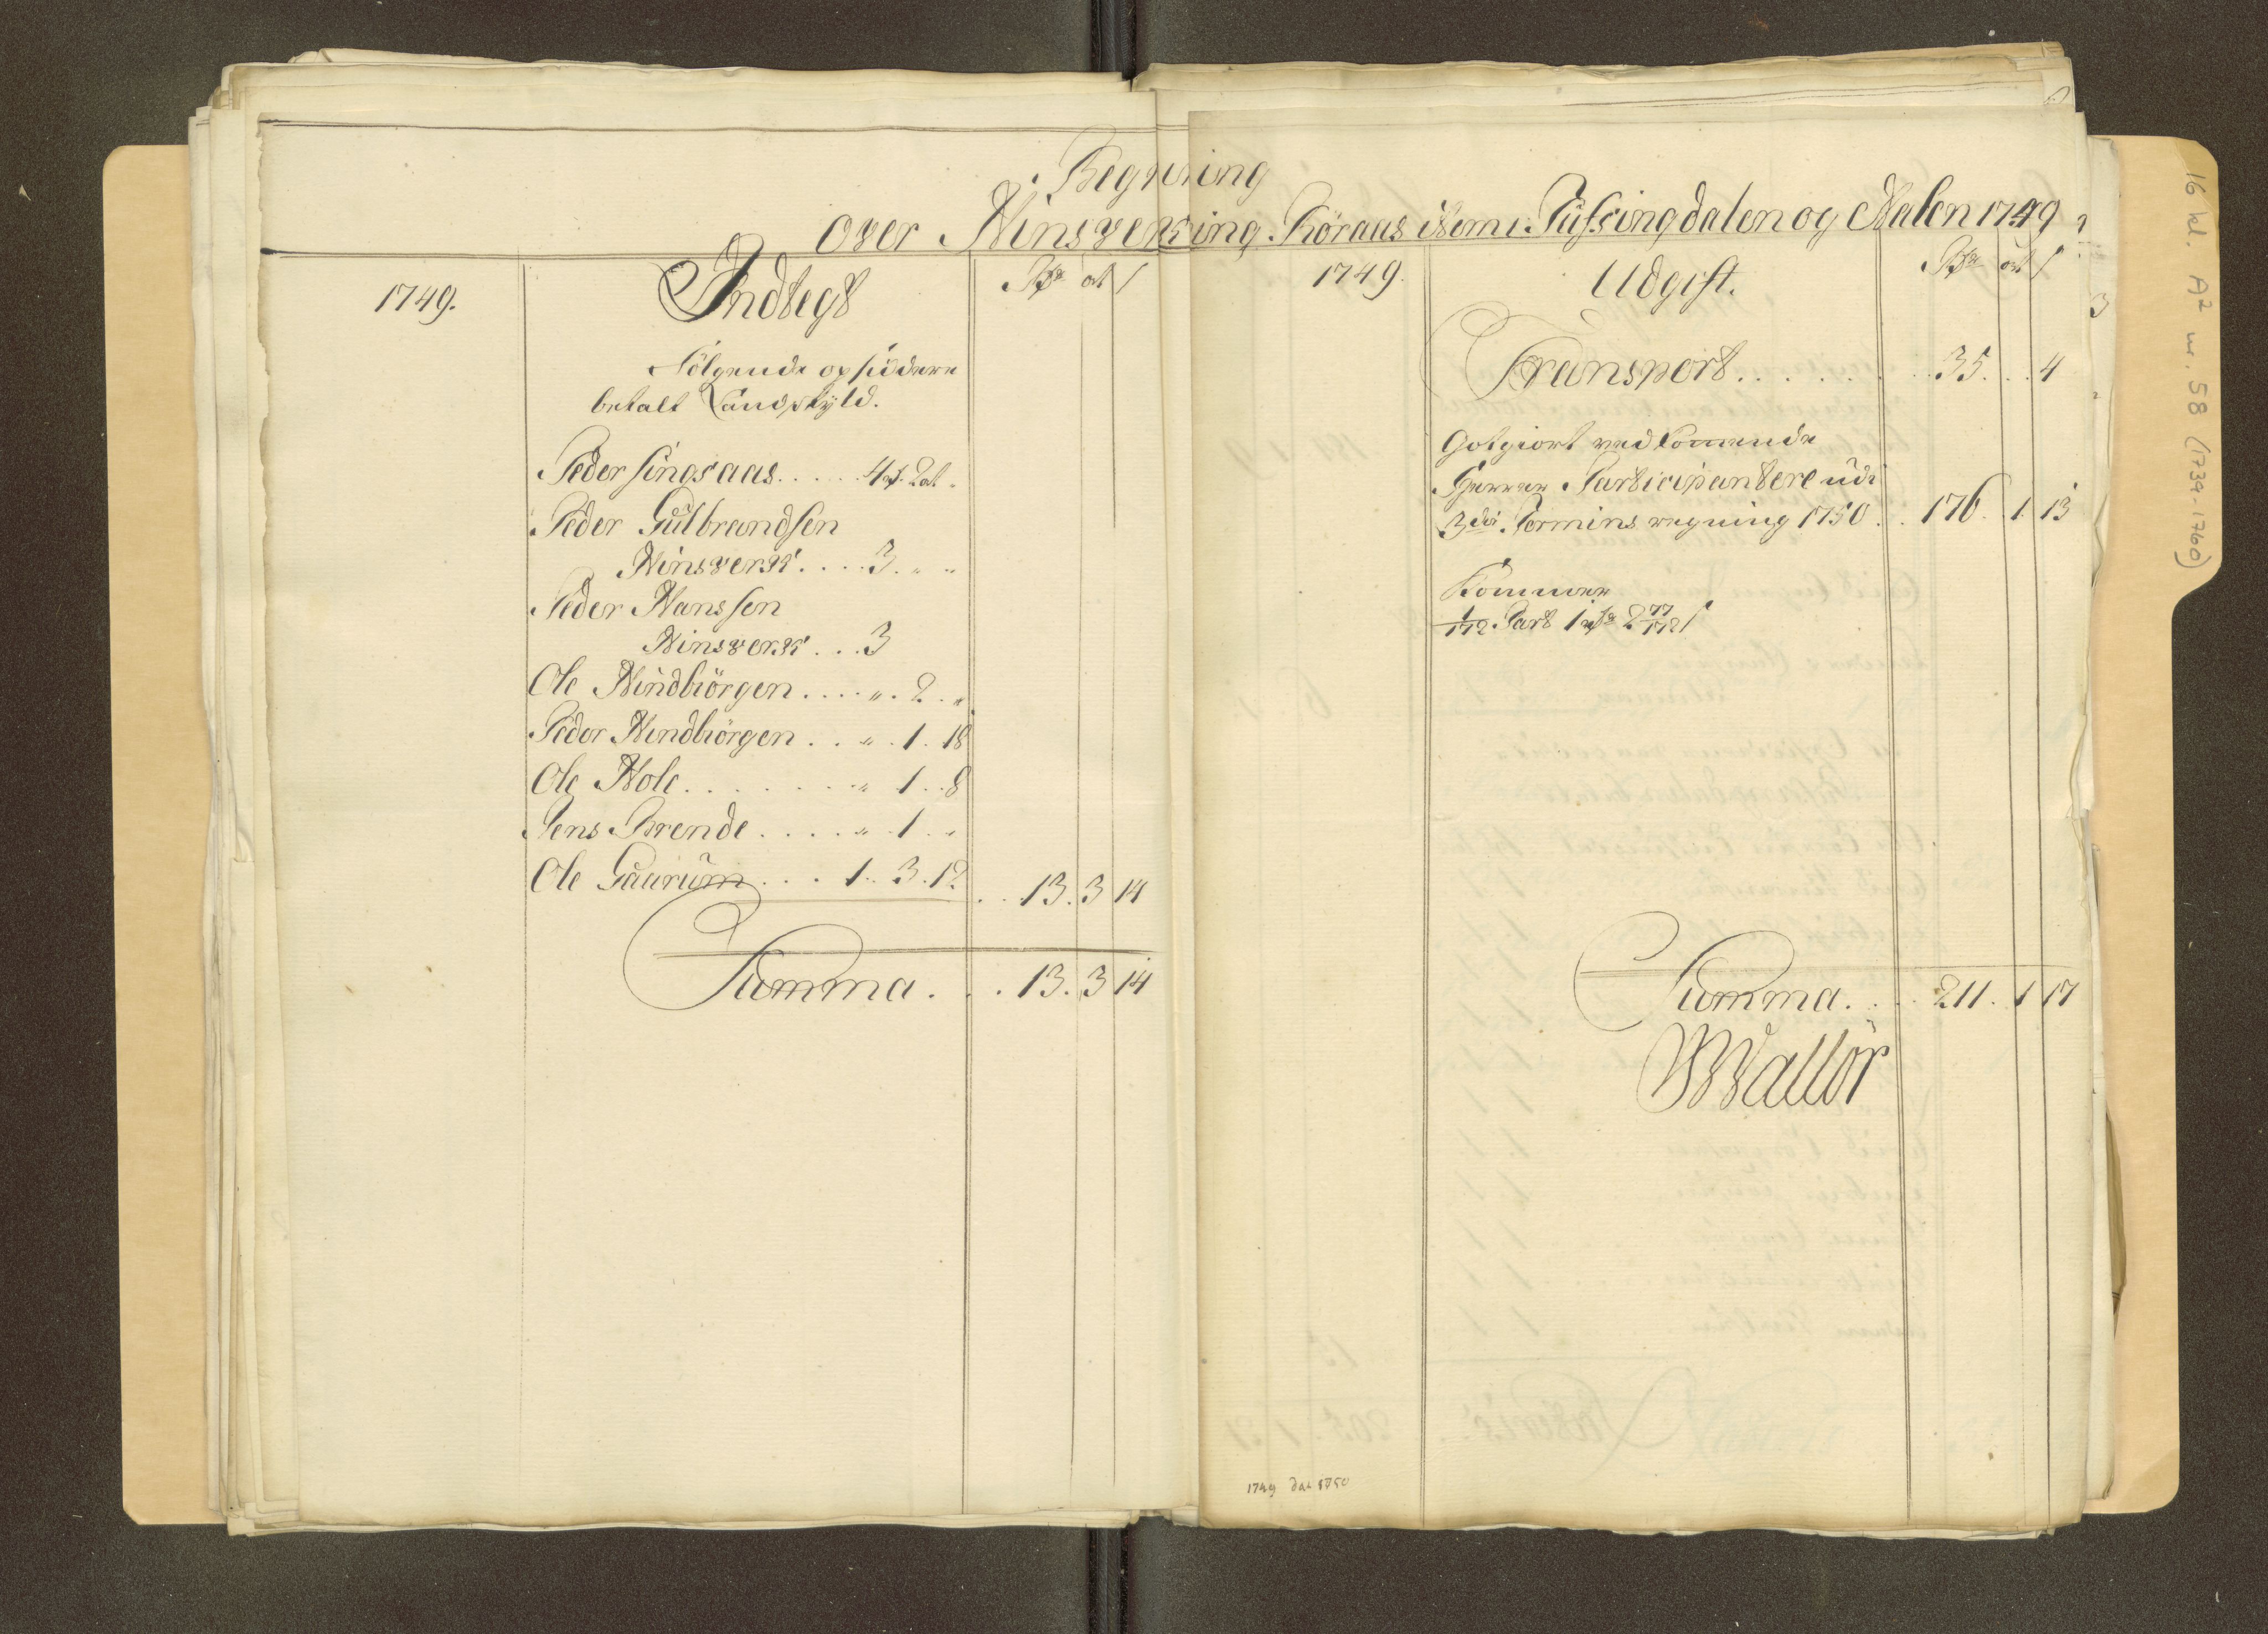 Regnning
over Hinsverk ing. Röraas item i Tüfsingdalen og Aalen 1749
1749.
Indtegt
Rdr ort ſ
Fölgende opsiddere
betalt Landskyld.
Peder Singsaas..... 4 rdr. 2 ort "
Peder Gülbrandsen
Hinsverk.... 3. " "
Peder Hanssen
Hinsverk... 3
Ole Hindbiörgen.... ". 2. "
Peder Hindbiörgen.. ". 1. 18
Ole Hole....... " 1.. 8
Jens Brende.... ". 1.. "
Ole Gaurüm... 1.. 3. 12 .. 13. 3 14
Summa... 13. 3 14
1749.
Udgift.
Rdr ort ſ
Transport........ 35... 4
Gotgiort vedkommende
Herrer Participantere udi
3die Termins regning 1750.. 176. 1. 13
Kommer
1/172 Part 1 rdr 2 77/172 ſ
Summa.... 211. 1 17
Wallör
1749 dat 1750
16 kl. A2 nr. 58 (1739-1760)